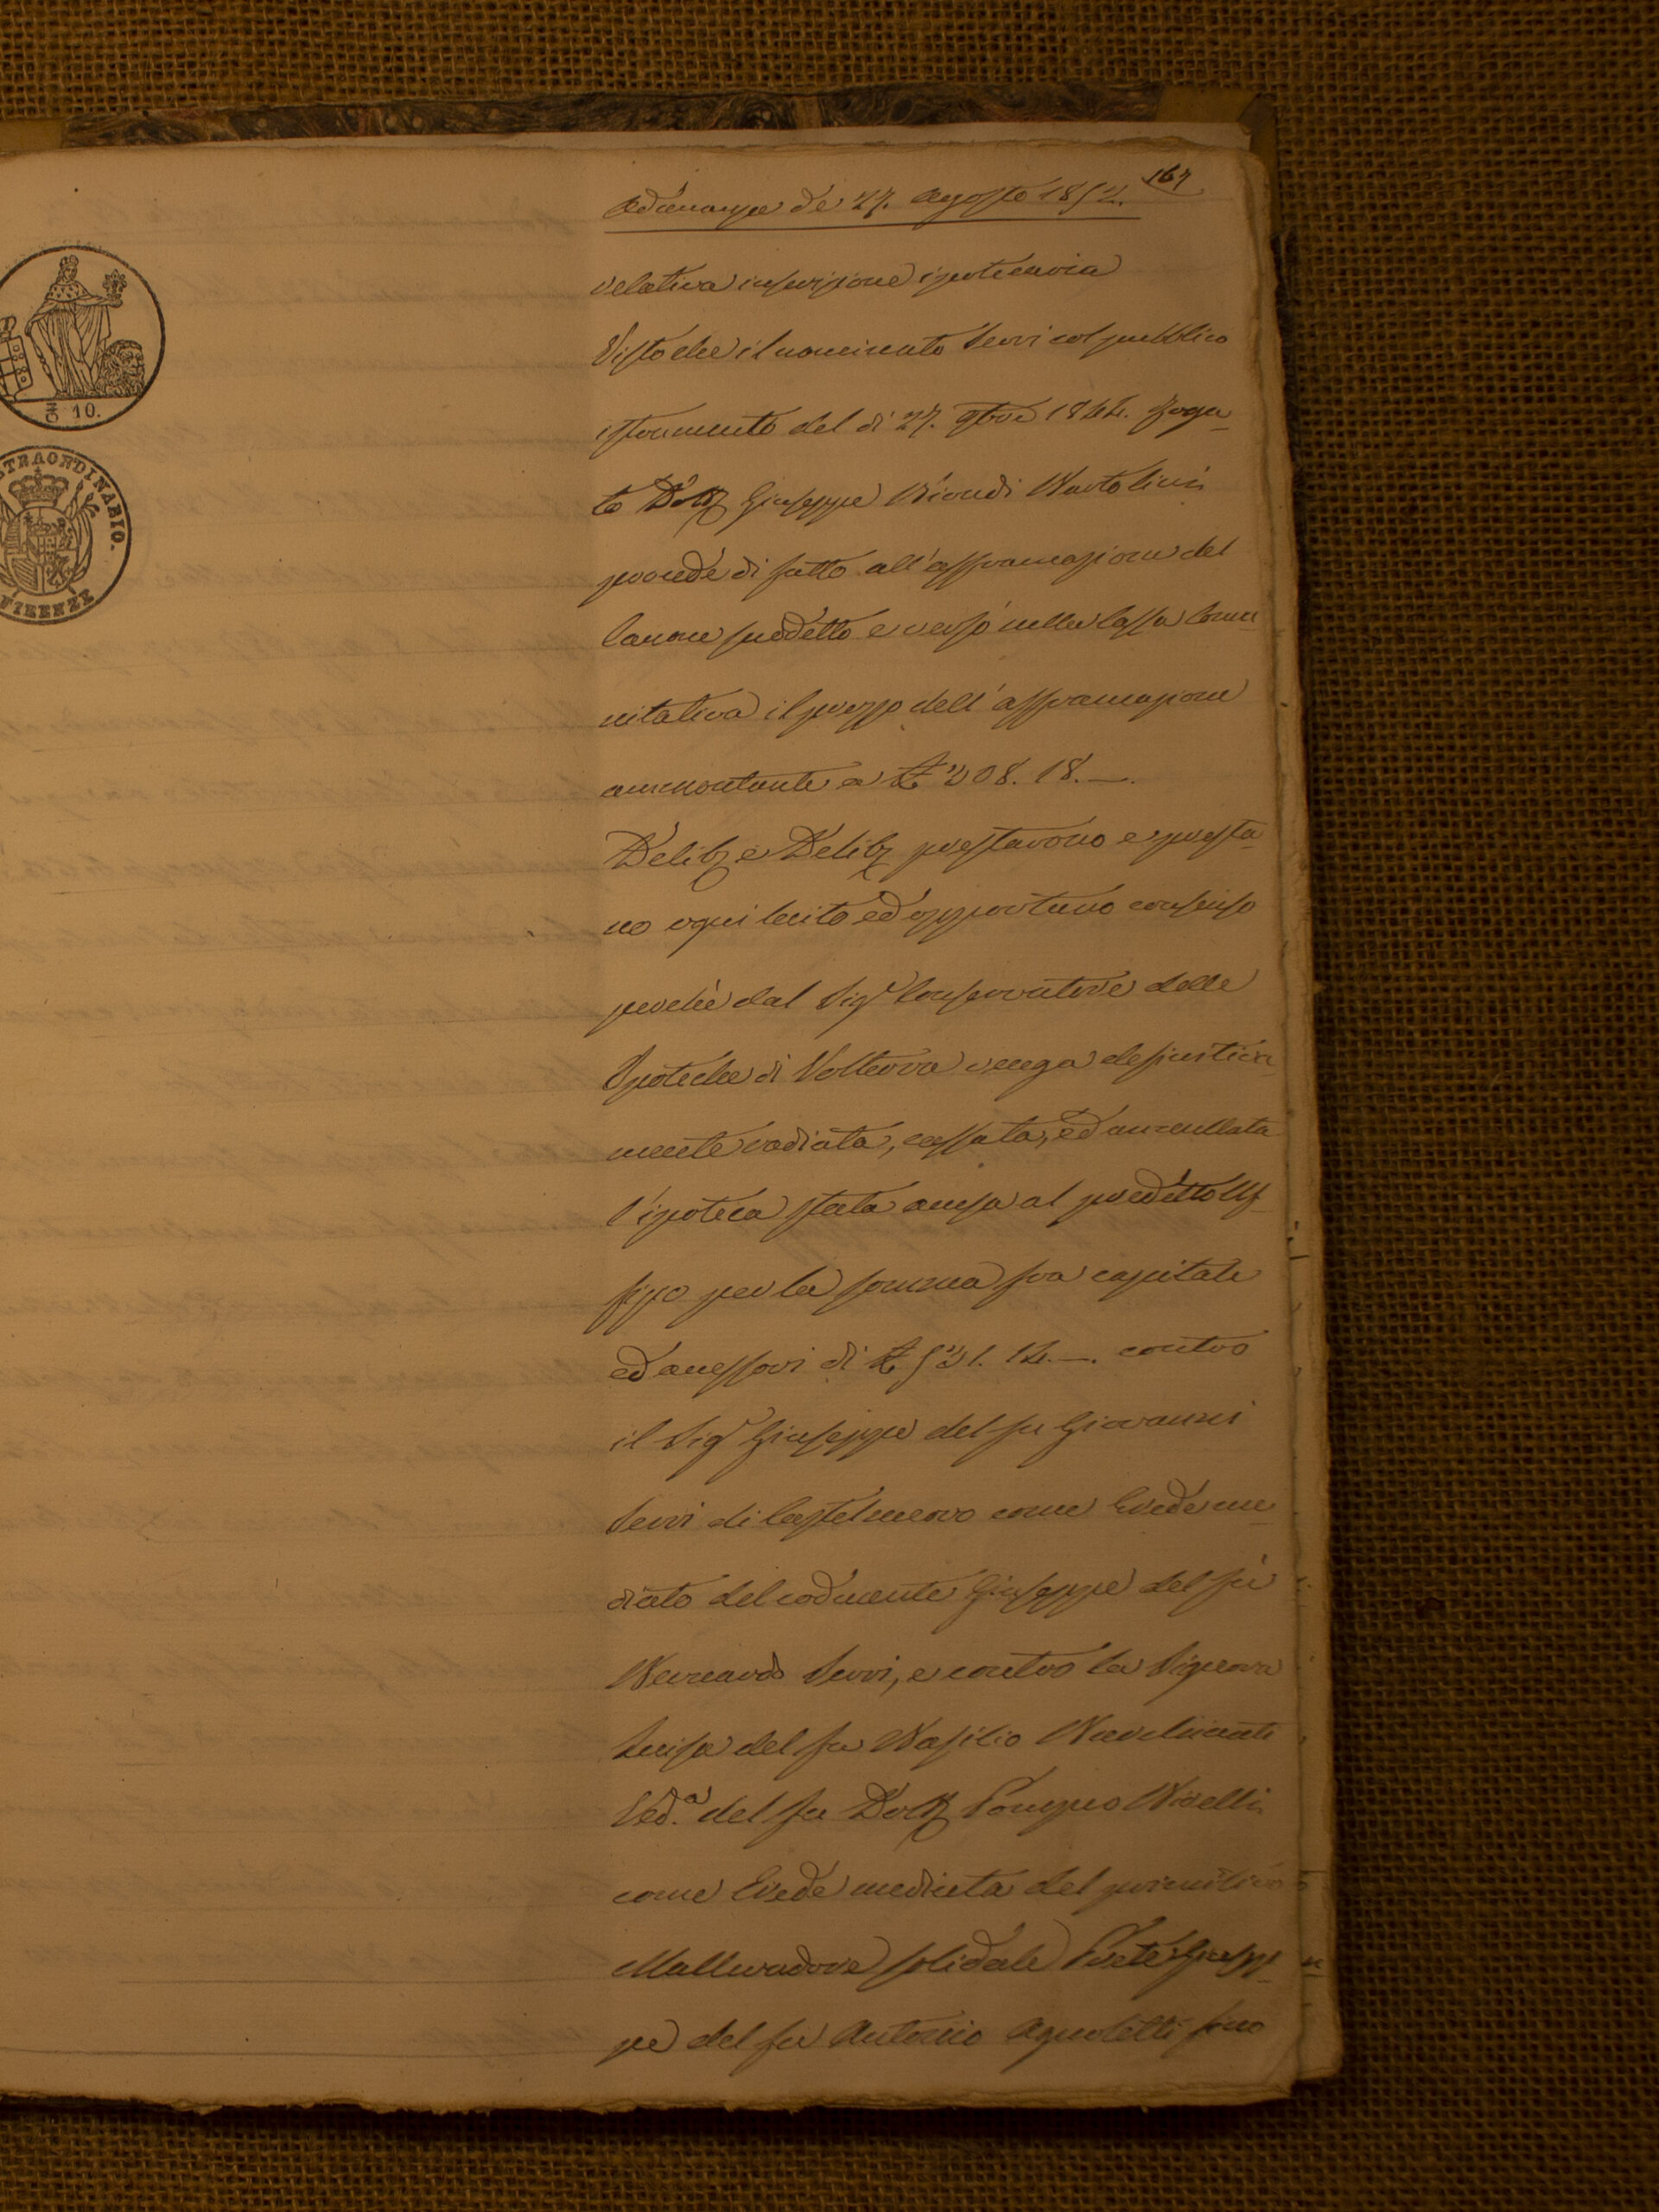 167
Adunanza de 27. Agosto 1852.
relativa inscrizione ipotecaria
Visto che il nominato Serri col pubblico
istrumento del dì 27. 9bre 1844. roga-
to Dott Giuseppe Biondi Bartolini
procedè di fatto all'affrancazione del
Canone suddetto e versò nella Cassa Comu-
nitativa il prezzo dell'affrancazione
ammontante a £ 308. 18. —.
Delib e Delib prestarono e presta-
no ogni lecito ed opportuno consenso
perchè dal Sigr Conservatore delle
Ipoteche di Volterra venga definitiva-
mente radiata, cassata, ed annullata
l'ipoteca stata accesa al predetto Uf-
fizio per la somma fra capitale
ed accessori di £ 531. 14. —. contro
il Sigr Giuseppe del fu Giovanni
Serri di Castelnuovo come Erede me-
diato del coduente Giuseppe del fu
Bernardo Serri, e contro la Signora
Luisa del fu Basilio Bavelinanti
Ved.a del fu Dott Pompeo Biselli
come Erede mediata del primitivo
Mallevadore solidale Prete Giusep-
pe del fu Antonio Agnoletti sono
CH 10.
STRAORDINARIO.
FIRENZE